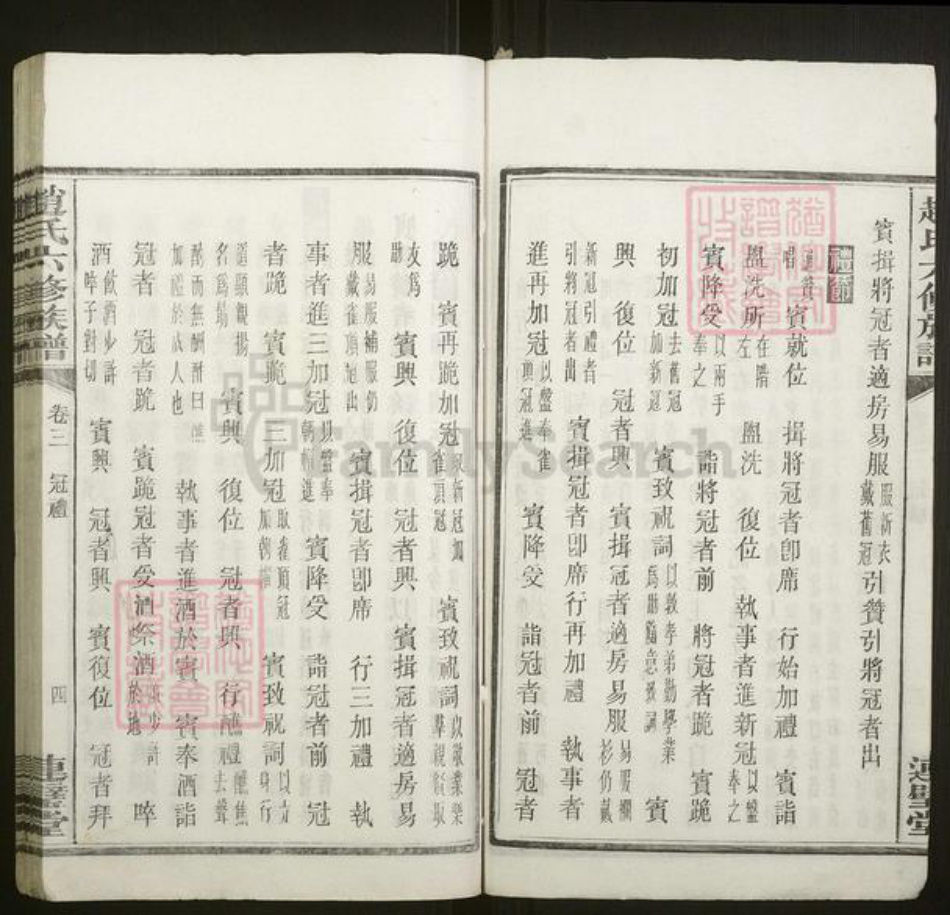 賓揖將冠者適房易服服新衣戴舊冠引贊引將冠者出
禮節
唱通贊賓就位 揖將冠者卽席 行始加禮 賓詣
盥洗所在階左 盥洗 復位 執事者進新冠以盤奉之
賓降受以兩手奉之 詣將冠者前 將冠者跪 賓跪
初加冠去舊冠加新冠 賓致祝詞以敦孝弟勤學業爲勗隨意撰詞 賓
興 復位 冠者興 賓揖冠者適房易服易服襴衫仍戴
新冠引禮者引將冠者出 賓揖冠者卽席行再加禮 執事者
進再加冠以盤奉雀頂冠進 賓降受 詣冠者前 冠者
跪 賓再跪加冠取新冠加雀頂冠 賓致祝詞以敬業樂羣親賢取
友爲勗 賓興 復位 冠者興 賓揖冠者適房易
服易服補服仍戴雀頂旭出 賓揖冠者卽席 行三加禮 執
事者進三加冠以盤奉朝帽進 賓降受 詣冠者前 冠
者跪 賓跪 三加冠取雀頂冠加朝帽 賓致祝詞以立身行
道顯親揚名爲勗 賓興 復位 冠者興 行醮禮醮焦去聲
酌而無酬酢曰醮加禮於成人也 執事者進酒於賓 賓奉酒詣
冠者 冠者跪 賓跪冠者受酒祭酒灰少許於地 啐
酒飲酒少許啐子對切 賓興 冠者興 賓復位 冠者拜
趙氏六修族譜 卷三 冠禮 四 連璧堂
趙氏六修族譜 連璧堂
FamilySearch